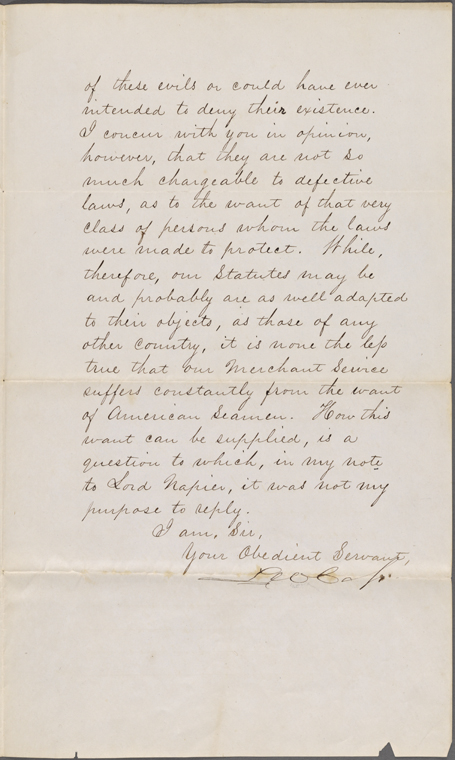 of these evils or could have ever
intended to deny their existence.
I concur with you in opinion,
however, that they are not so
much chargeable to defective
laws, as to the want of that very
class of persons whom the laws
were made to protect. While,
therefore, our Statutes may be
and probably are as well adapted
to their objects, as those of any
other Country, it is none the less
true that our Merchant Service
suffers constantly from the want
of American Seamen. How this
want can be supplied, is a
question to which, in my note
to Lord Napier, it was not my
purpose to reply.
I am, Sir,
Your Obedient Servant,
Lew Cass.